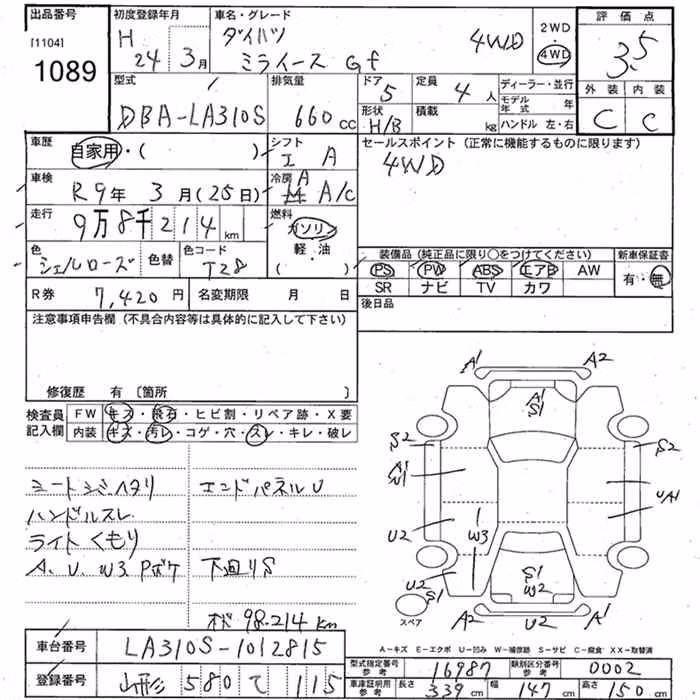 出品番号 初度登録年月 車名・グレード 評価点
[1104] H 24年 3月 ダイハツ ミライース Gf 4WD 2WD・4WD 3.5
1089
型式 排気量 ドア 5 定員 4人 ディーラー・並行 外装 内装
DBA-LA310S 660cc 形状 H/B 積載 kg モデル年式 年 C C
ハンドル 左・右
車歴 自家用・( ) シフト I A セールスポイント (正常に機能するものに限ります)
4WD
車検 R9年 3月(25日) 冷房 A A/C
走行 9万8千214km 燃料 ガソリン・軽・油 ( )
色 シェルローズ 色替 色コード T28 装備品 (純正品に限り○をつけてください) 新車保証書
PS PW ABS エアB AW 有・無
SR ナビ TV カワ
R券 7,420円 名変期限 月 日 後日品
注意事項申告欄 (不具合内容等は具体的に記入して下さい)
修復歴 有 〔箇所 〕
検査員 FW キズ・飛石・ヒビ割・リペア跡・X要
記入欄 内装 キズ・汚レ・コゲ・穴・スレ・キレ・破レ
シートシミ、ヘタリ エンドパネルU
ハンドルスレ
ライトくもり
A、U、W3、Pボケ 下回りS
98.214km
A1 A2
A1
S1
S2 S2
A1
W1 UA1
U2 W3
U2 S1
S1 W2
A2 U2 A1
スペア
A-キズ E-エクボ U-凹み W-補修跡 S-サビ C-腐食 XX-交換済
車台番号 LA310S-1012815
型式指定番号 参考 16987 類別区分番号 参考 0002
登録番号 山形 580 て 115
車庫証明用 参考 長さ 339cm 幅 147cm 高さ 150cm